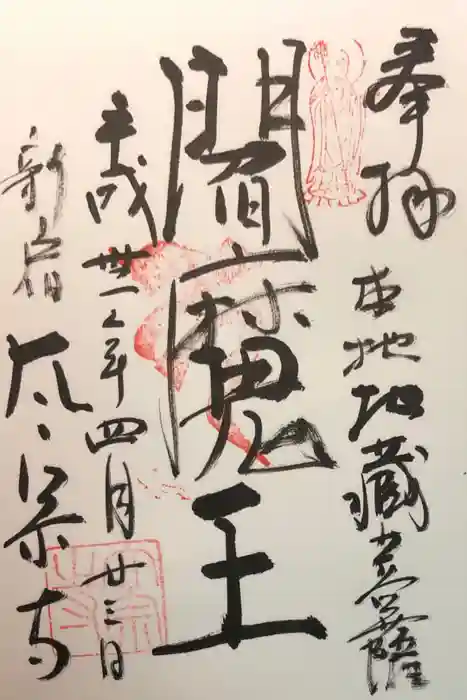 奉拝
本地地蔵菩薩
閻魔王
平成卅一年四月廿三日
新宿
太宗寺